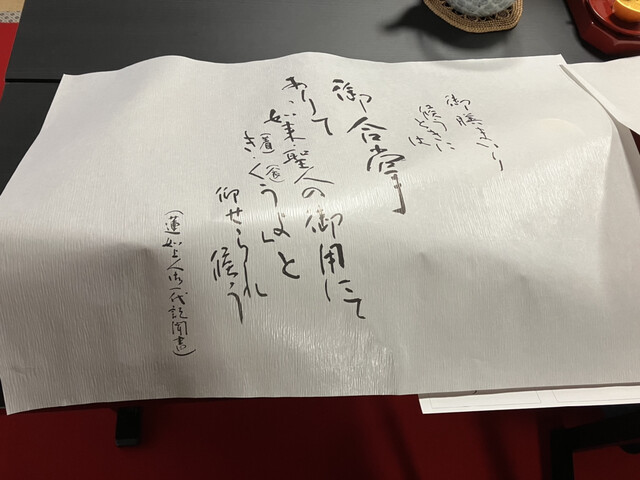 御膳まいり
候うときには
御合掌
ありて、
「如来聖人の御用にて
き(着)・く(食)うよ」と
仰せられ
候う
(蓮如上人御一代記聞書)